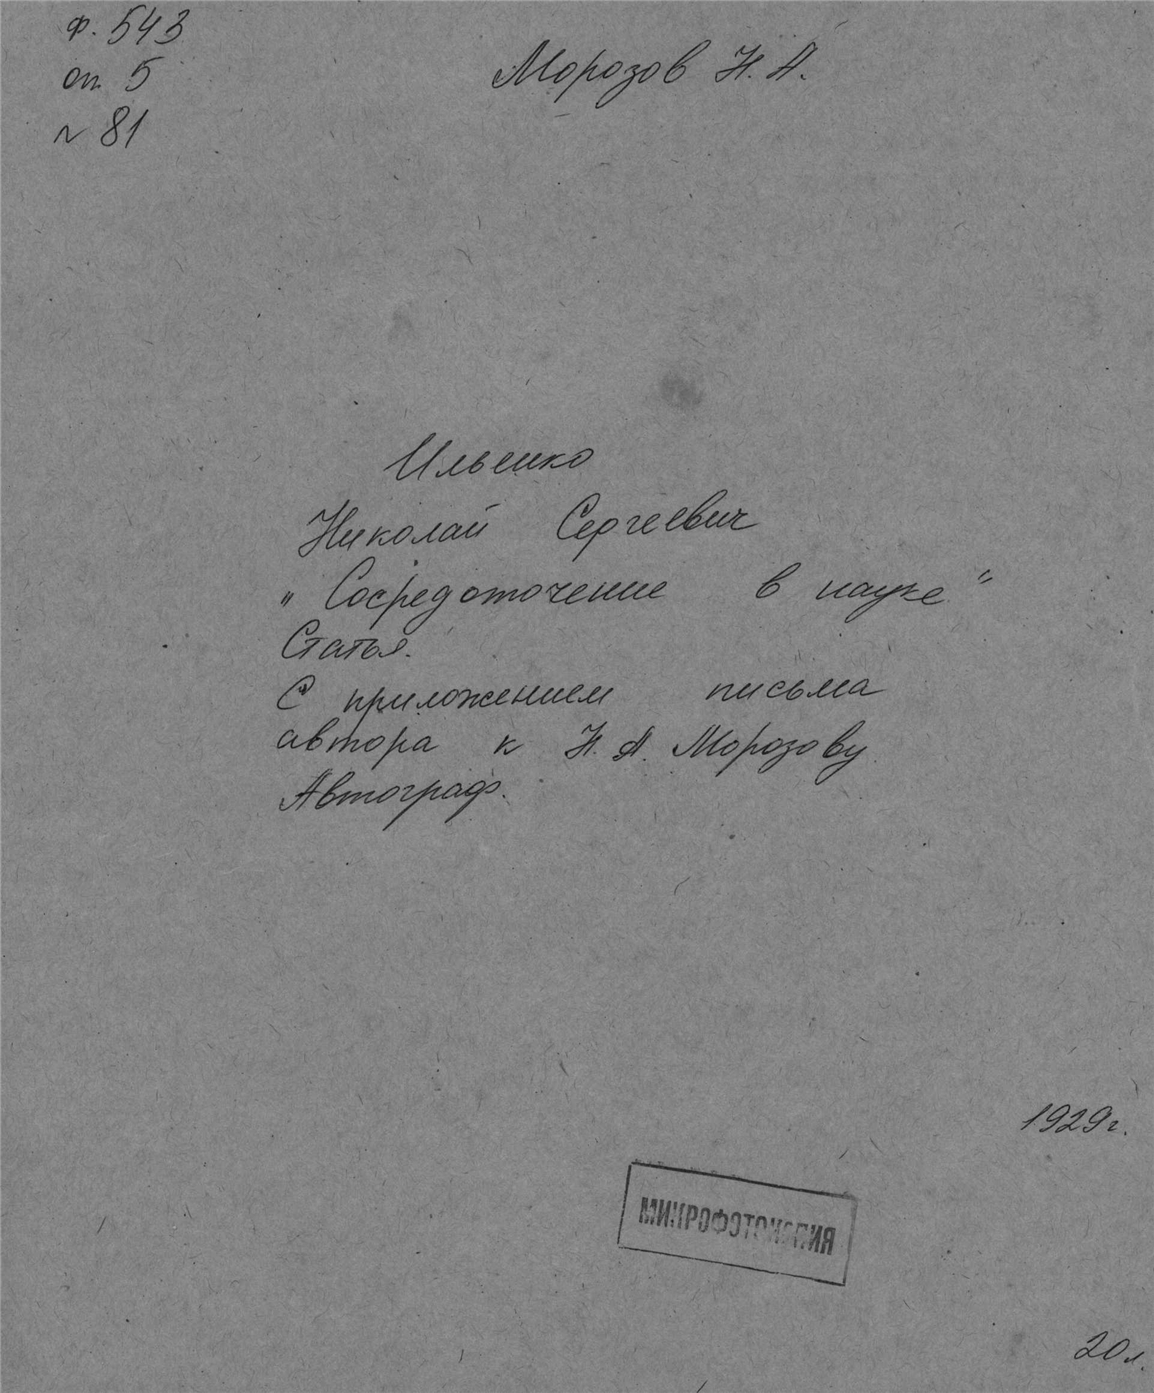 ф. 543
оп. 5
№ 81
Морозов Н. А.
Ильенко
Николай Сергеевич
„Сосредоточение в науке“
Статья.
С приложением письма
автора к Н. А. Морозову.
Автограф.
1929г.
МИКРОФОТОКОПИЯ
20л.